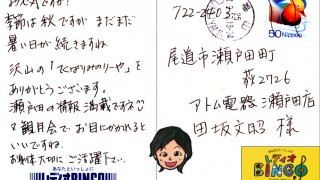 お元気ですか?
季節は秋ですが まだまだ
暑い日が続きますね
沢山の「てくばりみのりーや」を
ありがとうございます。
瀬戸田の情報満載ですネ
観月会で お目にかかれると
いいですね
お身体大切に ご活躍下さい
あなたといっしょに
レディオBINGO
722-2403
50 NIPPON
尾道市瀬戸田町
荻2726
アトム電器 瀬戸田店
田坂文昭 様
レディオ
BINGO